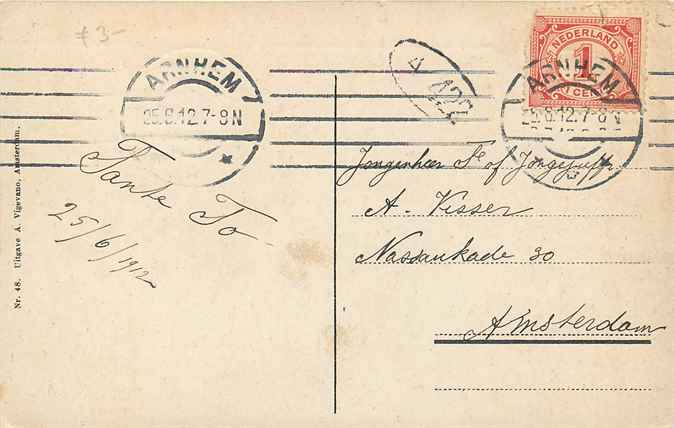 f 3-
ARNHEM
25.6.12.7-8N
NEDERLAND
1
CENT
ARNHEM
25.6.12.7-8N
Nr. 48. Uitgave A. Vigevano, Amsterdam.
Tante To
25/6/1912
Jongenheer of Jongejuffr
A. Visser
Nassaukade 30
Amsterdam